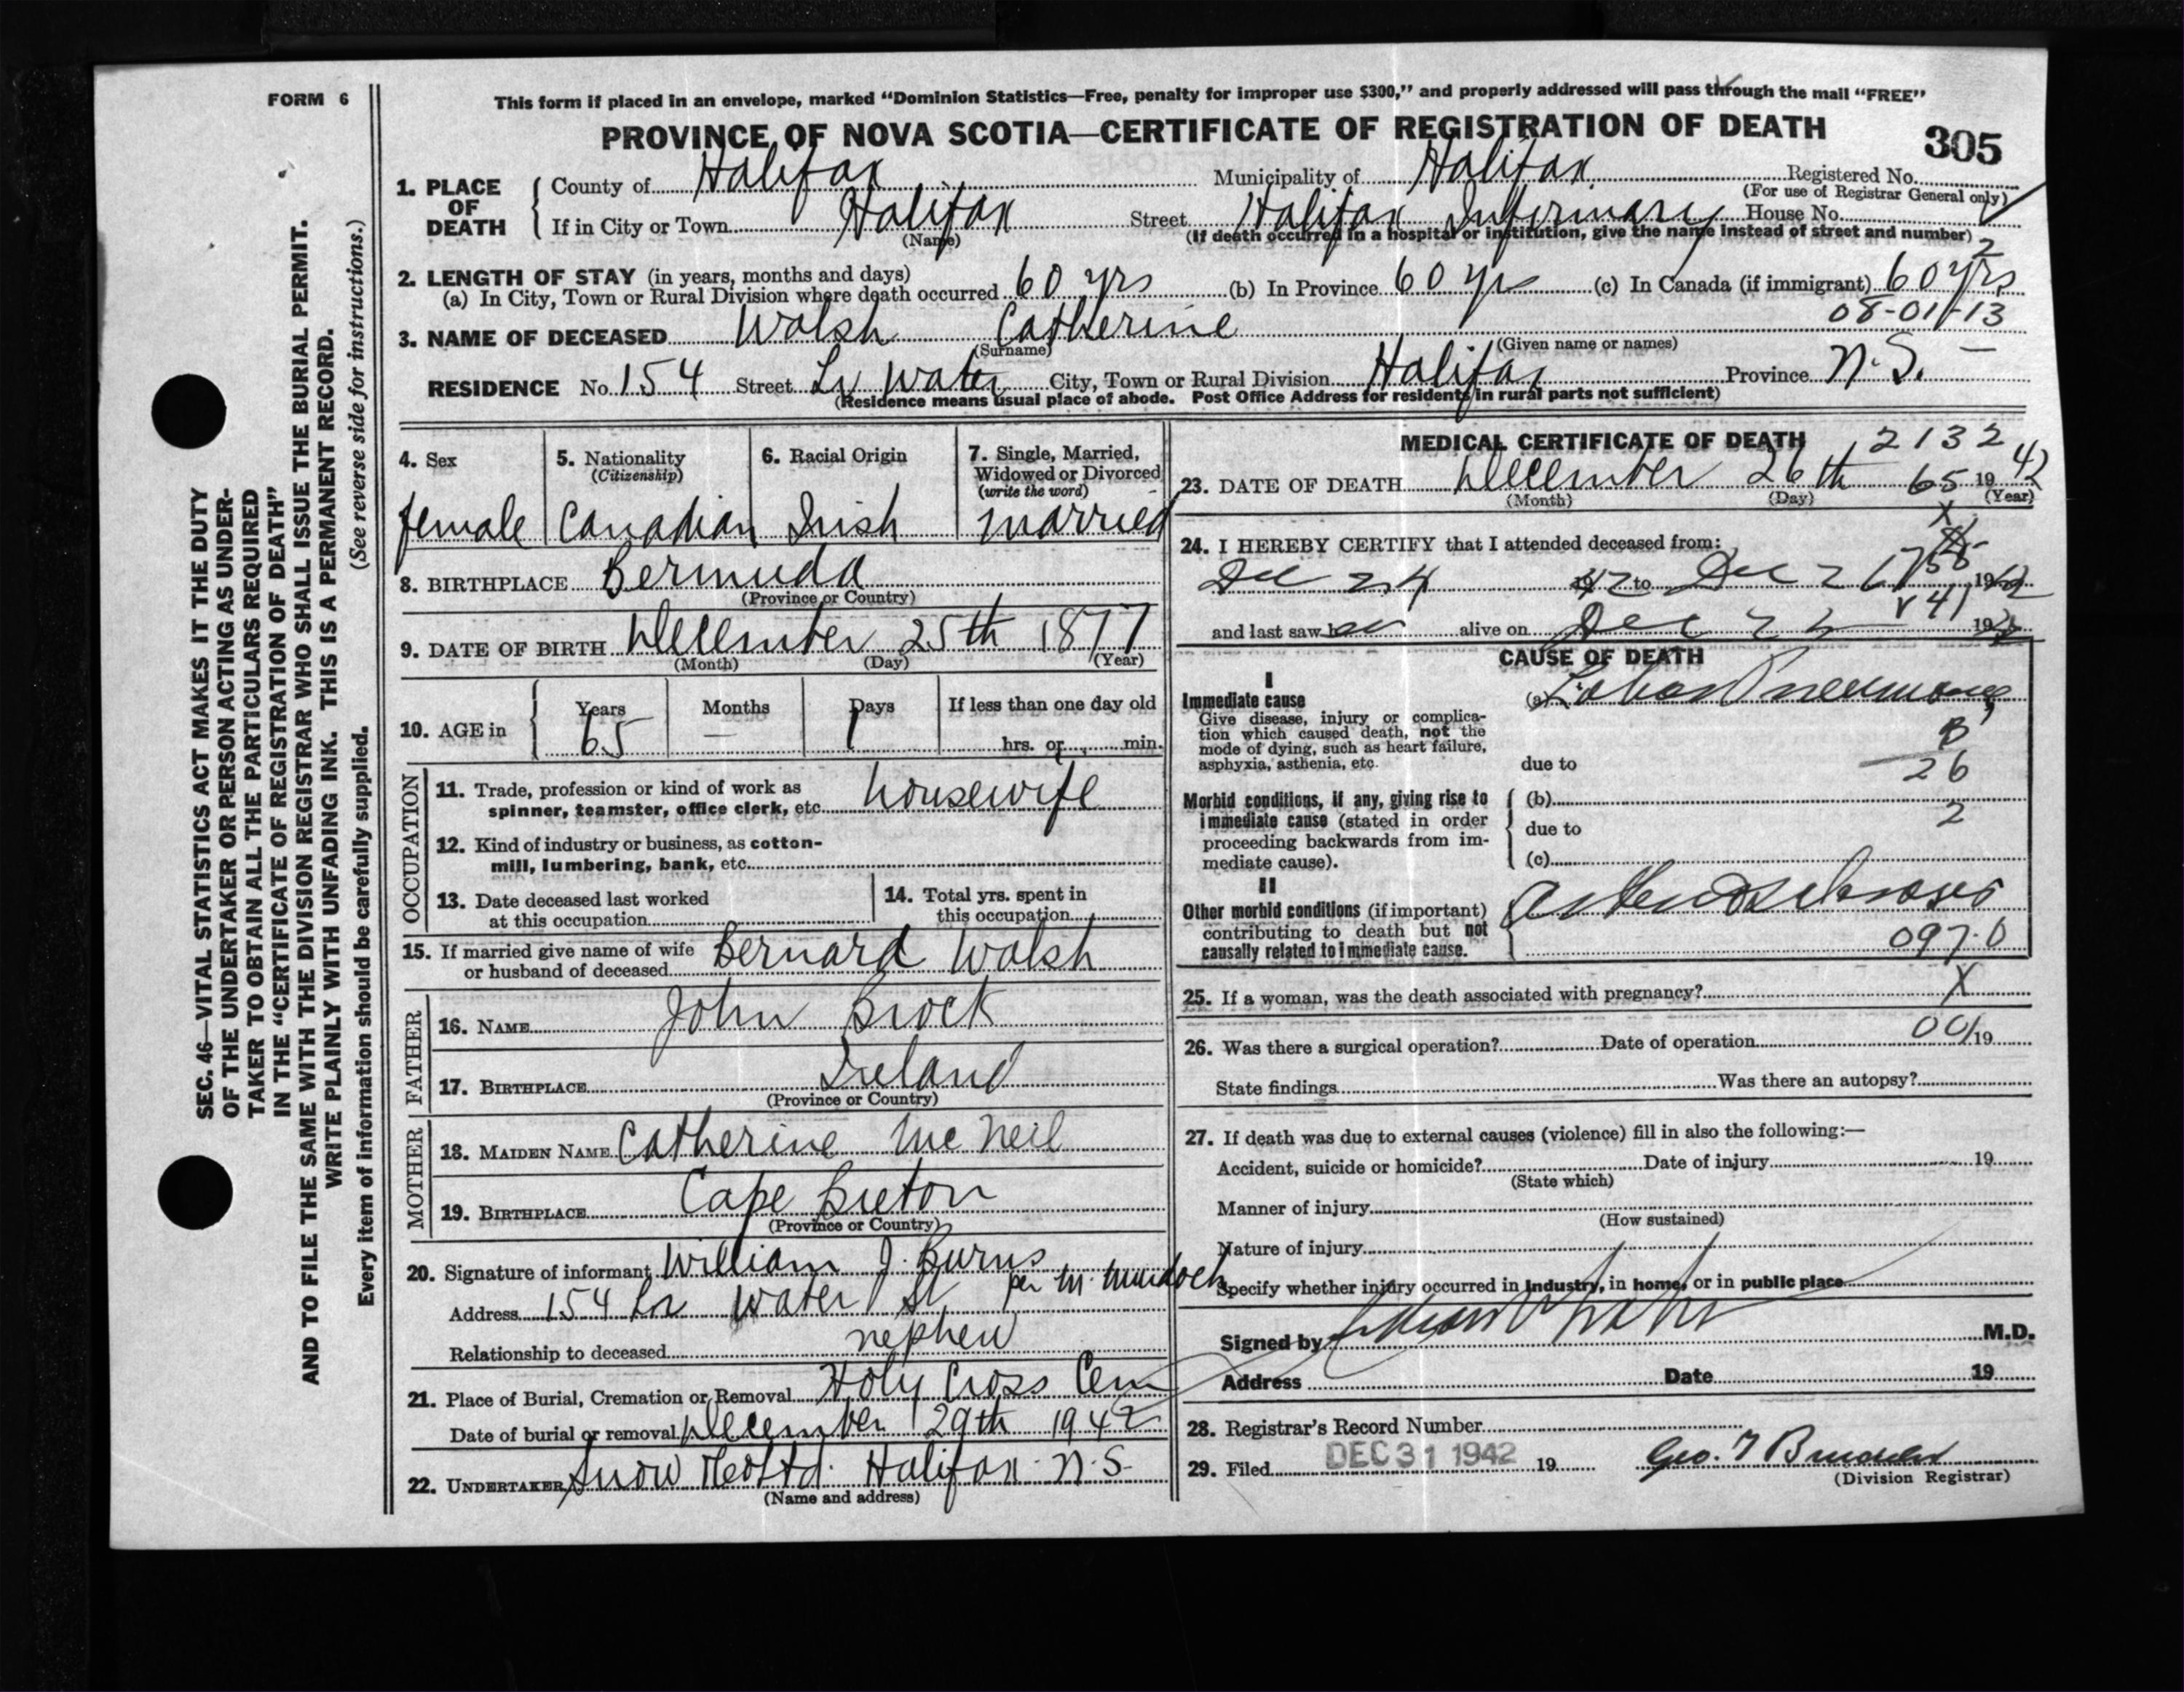 FORM 6
This form if placed in an envelope, marked "Dominion Statistics—Free, penalty for improper use $300," and properly addressed will pass through the mail "FREE"
PROVINCE OF NOVA SCOTIA—CERTIFICATE OF REGISTRATION OF DEATH
305
1. PLACE OF DEATH
County of Halifax Municipality of Halifax Registered No.
(For use of Registrar General only)
If in City or Town Halifax Street Halifax Infirmary House No.
(Name) (If death occurred in a hospital or institution, give the name instead of street and number)
2
2. LENGTH OF STAY (in years, months and days)
(a) In City, Town or Rural Division where death occurred 60 yrs (b) In Province 60 yrs (c) In Canada (if immigrant) 60 yrs
08-01-13
3. NAME OF DECEASED Walsh Catherine
(Surname) (Given name or names)
RESIDENCE No. 154 Street Lr Water City, Town or Rural Division Halifax Province N.S. —
(Residence means usual place of abode. Post Office Address for residents in rural parts not sufficient)
4. Sex
female
5. Nationality
(Citizenship)
Canadian
6. Racial Origin
Irish
7. Single, Married,
Widowed or Divorced
(write the word)
married
8. BIRTHPLACE Bermuda
(Province or Country)
9. DATE OF BIRTH December 25th 1877
(Month) (Day) (Year)
10. AGE in
Years Months Days If less than one day old
65 — 1 hrs. or min.
OCCUPATION
11. Trade, profession or kind of work as
spinner, teamster, office clerk, etc. housewife
12. Kind of industry or business, as cotton-
mill, lumbering, bank, etc.
13. Date deceased last worked
at this occupation
14. Total yrs. spent in
this occupation
15. If married give name of wife
or husband of deceased Bernard Walsh
FATHER
16. NAME John Brock
17. BIRTHPLACE Ireland
(Province or Country)
MOTHER
18. MAIDEN NAME Catherine McNeil
19. BIRTHPLACE Cape Breton
(Province or Country)
20. Signature of informant William J. Burns
per M Murdoch
Address 154 Lr Water St
Relationship to deceased nephew
21. Place of Burial, Cremation or Removal Holy Cross Cem
Date of burial or removal December 29th 1942
22. UNDERTAKER Snow Co Ltd. Halifax N.S.
(Name and address)
MEDICAL CERTIFICATE OF DEATH
2132
23. DATE OF DEATH December 26th 65 1942
(Month) (Day) (Year)
X
24. I HEREBY CERTIFY that I attended deceased from:
Dec 24 1942 to Dec 26 1942
and last saw her alive on Dec 19
CAUSE OF DEATH
I
Immediate cause
Give disease, injury or complica-
tion which caused death, not the
mode of dying, such as heart failure,
asphyxia, asthenia, etc.
(a) Lobar Pneumonia
B
due to
26
Morbid conditions, if any, giving rise to
immediate cause (stated in order
proceeding backwards from im-
mediate cause).
(b)
2
due to
(c)
II
Other morbid conditions (if important)
contributing to death but not
causally related to immediate cause.
Arteriosclerosis
097.0
25. If a woman, was the death associated with pregnancy? X
26. Was there a surgical operation? Date of operation 00/19
State findings Was there an autopsy?
27. If death was due to external causes (violence) fill in also the following:—
Accident, suicide or homicide? Date of injury 19
(State which)
Manner of injury
(How sustained)
Nature of injury
Specify whether injury occurred in industry, in home, or in public place
Signed by M.D.
Address Date 19
28. Registrar's Record Number
29. Filed DEC 31 1942 19 Geo. T
(Division Registrar)
SEC. 46—VITAL STATISTICS ACT MAKES IT THE DUTY
OF THE UNDERTAKER OR PERSON ACTING AS UNDER-
TAKER TO OBTAIN ALL THE PARTICULARS REQUIRED
IN THE "CERTIFICATE OF REGISTRATION OF DEATH"
AND TO FILE THE SAME WITH THE DIVISION REGISTRAR WHO SHALL ISSUE THE BURIAL PERMIT.
WRITE PLAINLY WITH UNFADING INK. THIS IS A PERMANENT RECORD.
Every item of information should be carefully supplied. (See reverse side for instructions.)